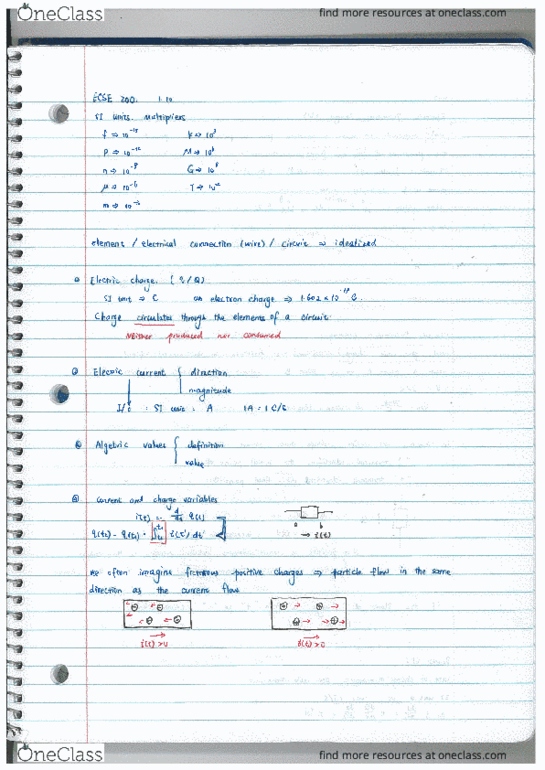 OneClass
find more resources at oneclass.com
ECSE 200. 1.10
SI units. Multipliers
f → 10⁻¹⁵ k → 10³
p → 10⁻¹² M → 10⁶
n → 10⁻⁹ G → 10⁹
μ → 10⁻⁶ T → 10¹²
m → 10⁻³
element / electrical connection (wire) / circuit → idealized
Electric charge. ( q / Q )
SI unit → C an electron charge → 1.602 × 10⁻¹⁹ C.
Charge circulates through the elements of a circuit.
Neither produced nor consumed
Electric current { direction
magnitude
I / i : SI unit : A 1A = 1 C/s
Algebric values { definition
value
Current and charge variables
i(t) = d/dt q(t)
q(t₂) - q(t₁) = ∫ i(t') dt'
a b
→ i(t)
We often imagine fictitious positive charges → particle flow in the same
direction as the current flow
i(t) > 0 i(t) > 0
OneClass
find more resources at oneclass.com